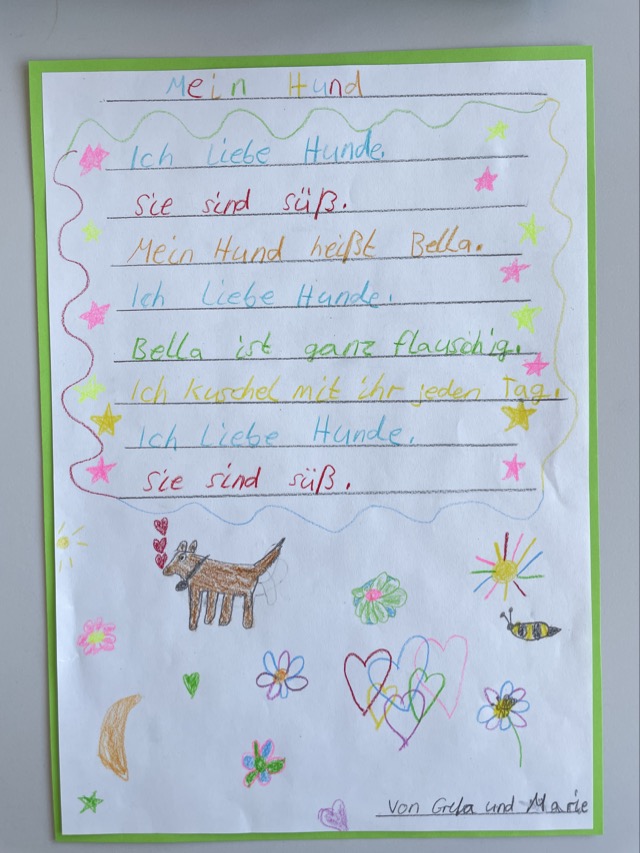 Mein Hund
Ich liebe Hunde.
Sie sind süß.
Mein Hund heißt Bella.
Ich liebe Hunde.
Bella ist ganz flauschig.
Ich kuschel mit ihr jeden Tag.
Ich liebe Hunde.
Sie sind süß.
von Greta und Marie